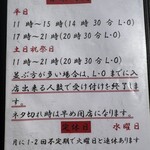 平日
11時～15時(14時30分L・O)
17時～21時(20時30分L・O)
土日祝祭日
11時～21時(20時30分L・O)
並ぶ方が多い場合は、L・Oまでに入
店出来る人数で受け付けを終了しま
す。
ネタ切れ時は早め閉店になります。
定休日 水曜日
月に1-2回不定期で火曜日と連休あります